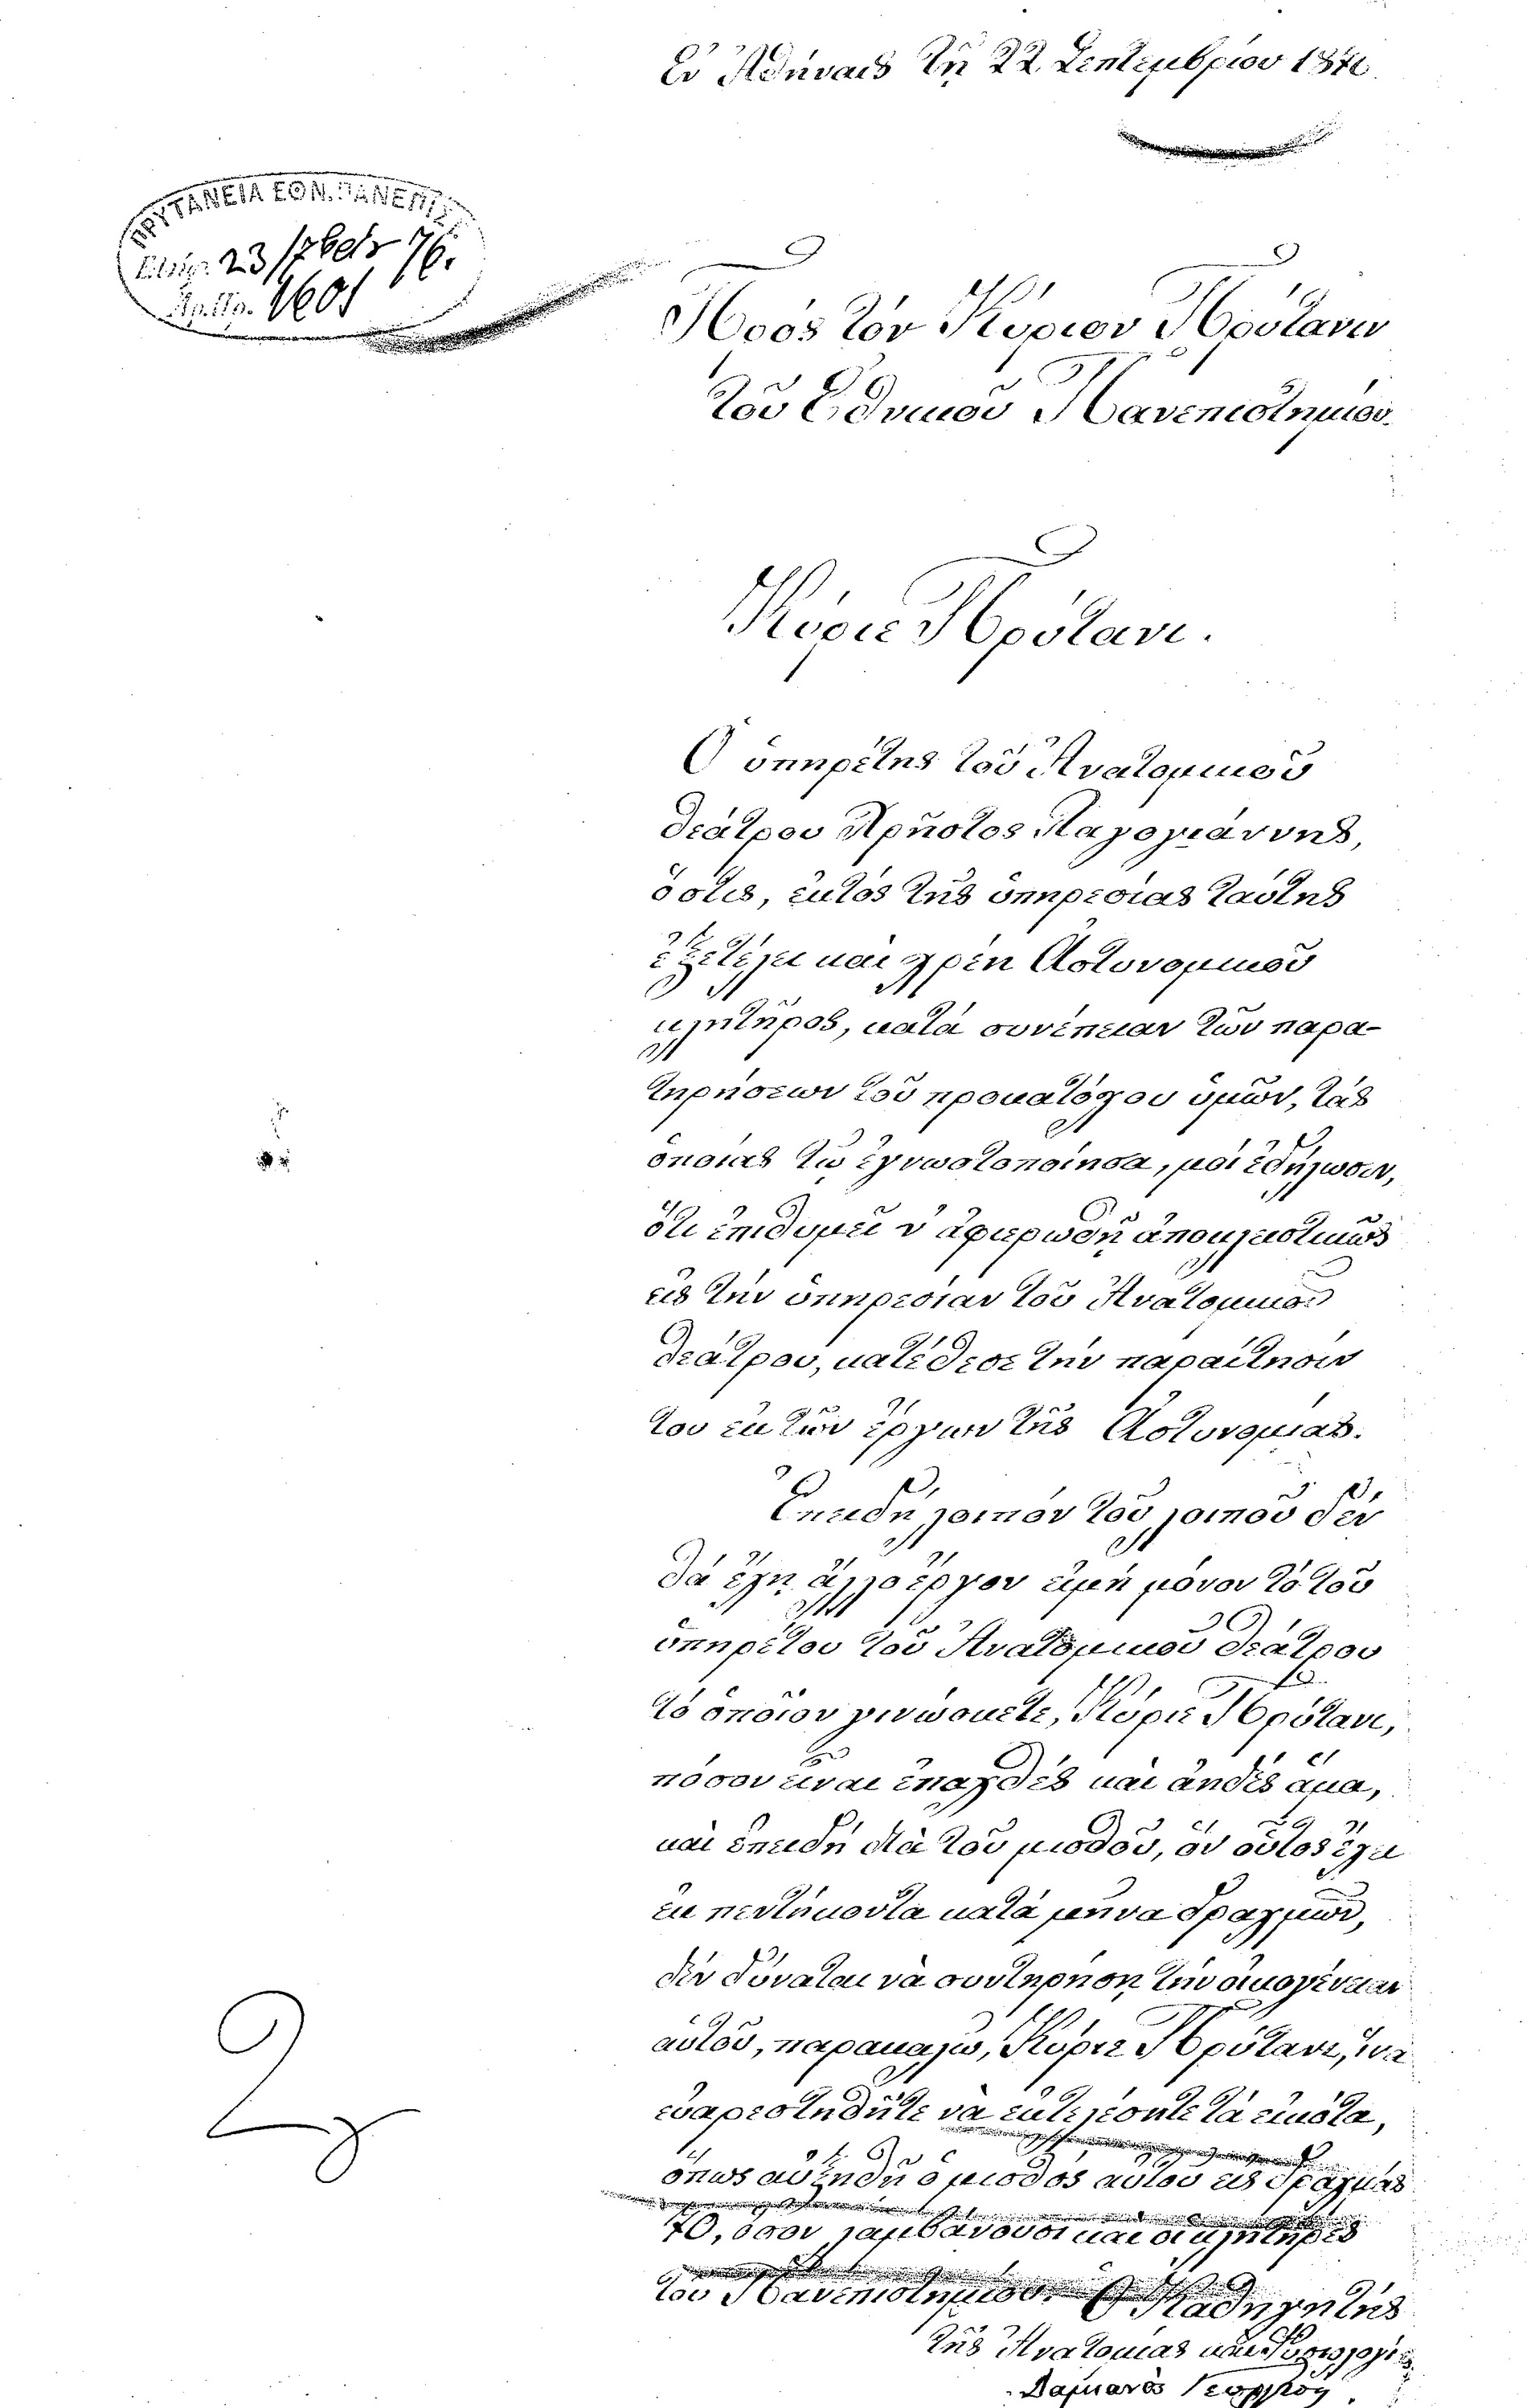 Ἐν Ἀθήναις τῇ 22 Σεπτεμβρίου 1876.
ΠΡΥΤΑΝΕΙΑ ΕΘΝ. ΠΑΝΕΠΙΣ
23 7βρίου 76.
Ἀρ. Πρ. 1601
Πρὸς τὸν Κύριον Πρύτανιν
τοῦ Ἐθνικοῦ Πανεπιστημίου.
Κύριε Πρύτανι.
Ὁ ὑπηρέτης τοῦ Ἀνατομικοῦ
θεάτρου Χρῆστος Παπογιάννης,
ὅστις, ἐκτὸς τῆς ὑπηρεσίας ταύτης
ἐξετέλει καὶ χρέη Ἀστυνομικοῦ
κλητῆρος, κατὰ συνέπειαν τῶν παρα-
τηρήσεων τοῦ προκατόχου ὑμῶν, τὰς
ὁποίας τῷ ἐγνωστοποίησα, μοὶ ἐδήλωσεν,
ὅτι ἐπιθυμεῖ ν' ἀφιερωθῇ ἀποκλειστικῶς
εἰς τὴν ὑπηρεσίαν τοῦ Ἀνατομικοῦ
θεάτρου, κατέθεσε τὴν παραίτησιν
του ἐκ τῶν ἔργων τῆς Ἀστυνομίας.
Ἐπειδὴ λοιπὸν τοῦ λοιποῦ δὲν
θὰ ἔχῃ ἄλλο ἔργον εἰμὴ μόνον τὸ τοῦ
ὑπηρέτου τοῦ Ἀνατομικοῦ θεάτρου
τὸ ὁποῖον γινώσκετε, Κύριε Πρύτανι,
πόσον εἶναι ἐπαχθὲς καὶ ἀηδὲς ἅμα,
καὶ ἐπειδὴ διὰ τοῦ μισθοῦ, ὃν οὗτος ἔχει
ἐκ πεντήκοντα κατὰ μῆνα δραχμῶν,
δὲν δύναται νὰ συντηρήσῃ τὴν οἰκογένειαν
αὐτοῦ, παρακαλῶ, Κύριε Πρύτανι, ἵνα
εὐαρεστηθῆτε νὰ ἐκτελέσητε τὰ εἰκότα,
ὅπως αὐξηθῇ ὁ μισθὸς αὐτοῦ εἰς δραχμὰς
70, ὅσον λαμβάνουσι καὶ οἱ κλητῆρες
τοῦ Πανεπιστημίου. Ὁ Καθηγητὴς
τῆς Ἀνατομίας καὶ
Δαμιανὸς Γεωργίου